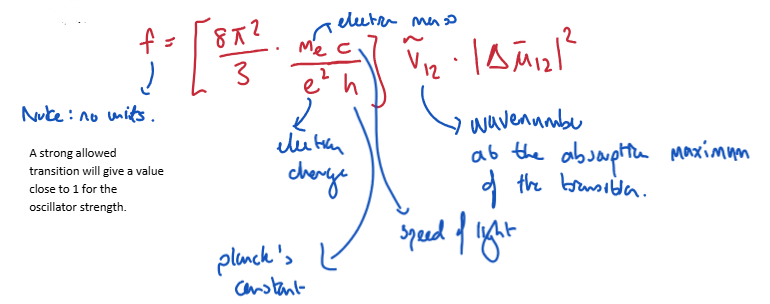 electron mass
f = [ 8π²/3 · mₑ c / e² h ] ṽ₁₂ · |Δμ̄₁₂|²
Note: no units.
A strong allowed
transition will give a value
close to 1 for the
oscillator strength.
electron
charge
wavenumber
at the absorption maximum
of the transition.
speed of light
planck's
constant